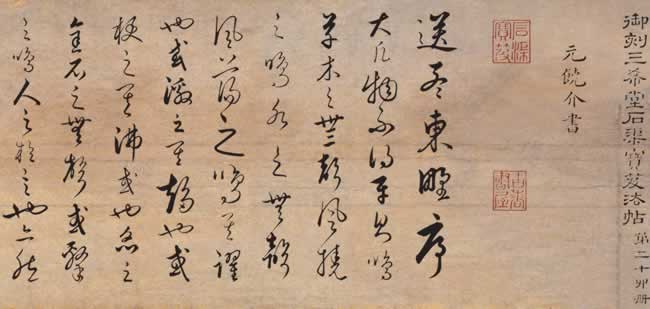 御刻三希堂石渠寶笈法帖 第二十四册
元饒介書
石渠寶笈
送孟東野序
大凡物不得平則鳴
草木之無聲風撓
之鳴水之無聲
風蕩之鳴其躍
也或激之其趨也或
梗之其沸或也炙之
金石之無聲或擊
之鳴人之於言也亦然